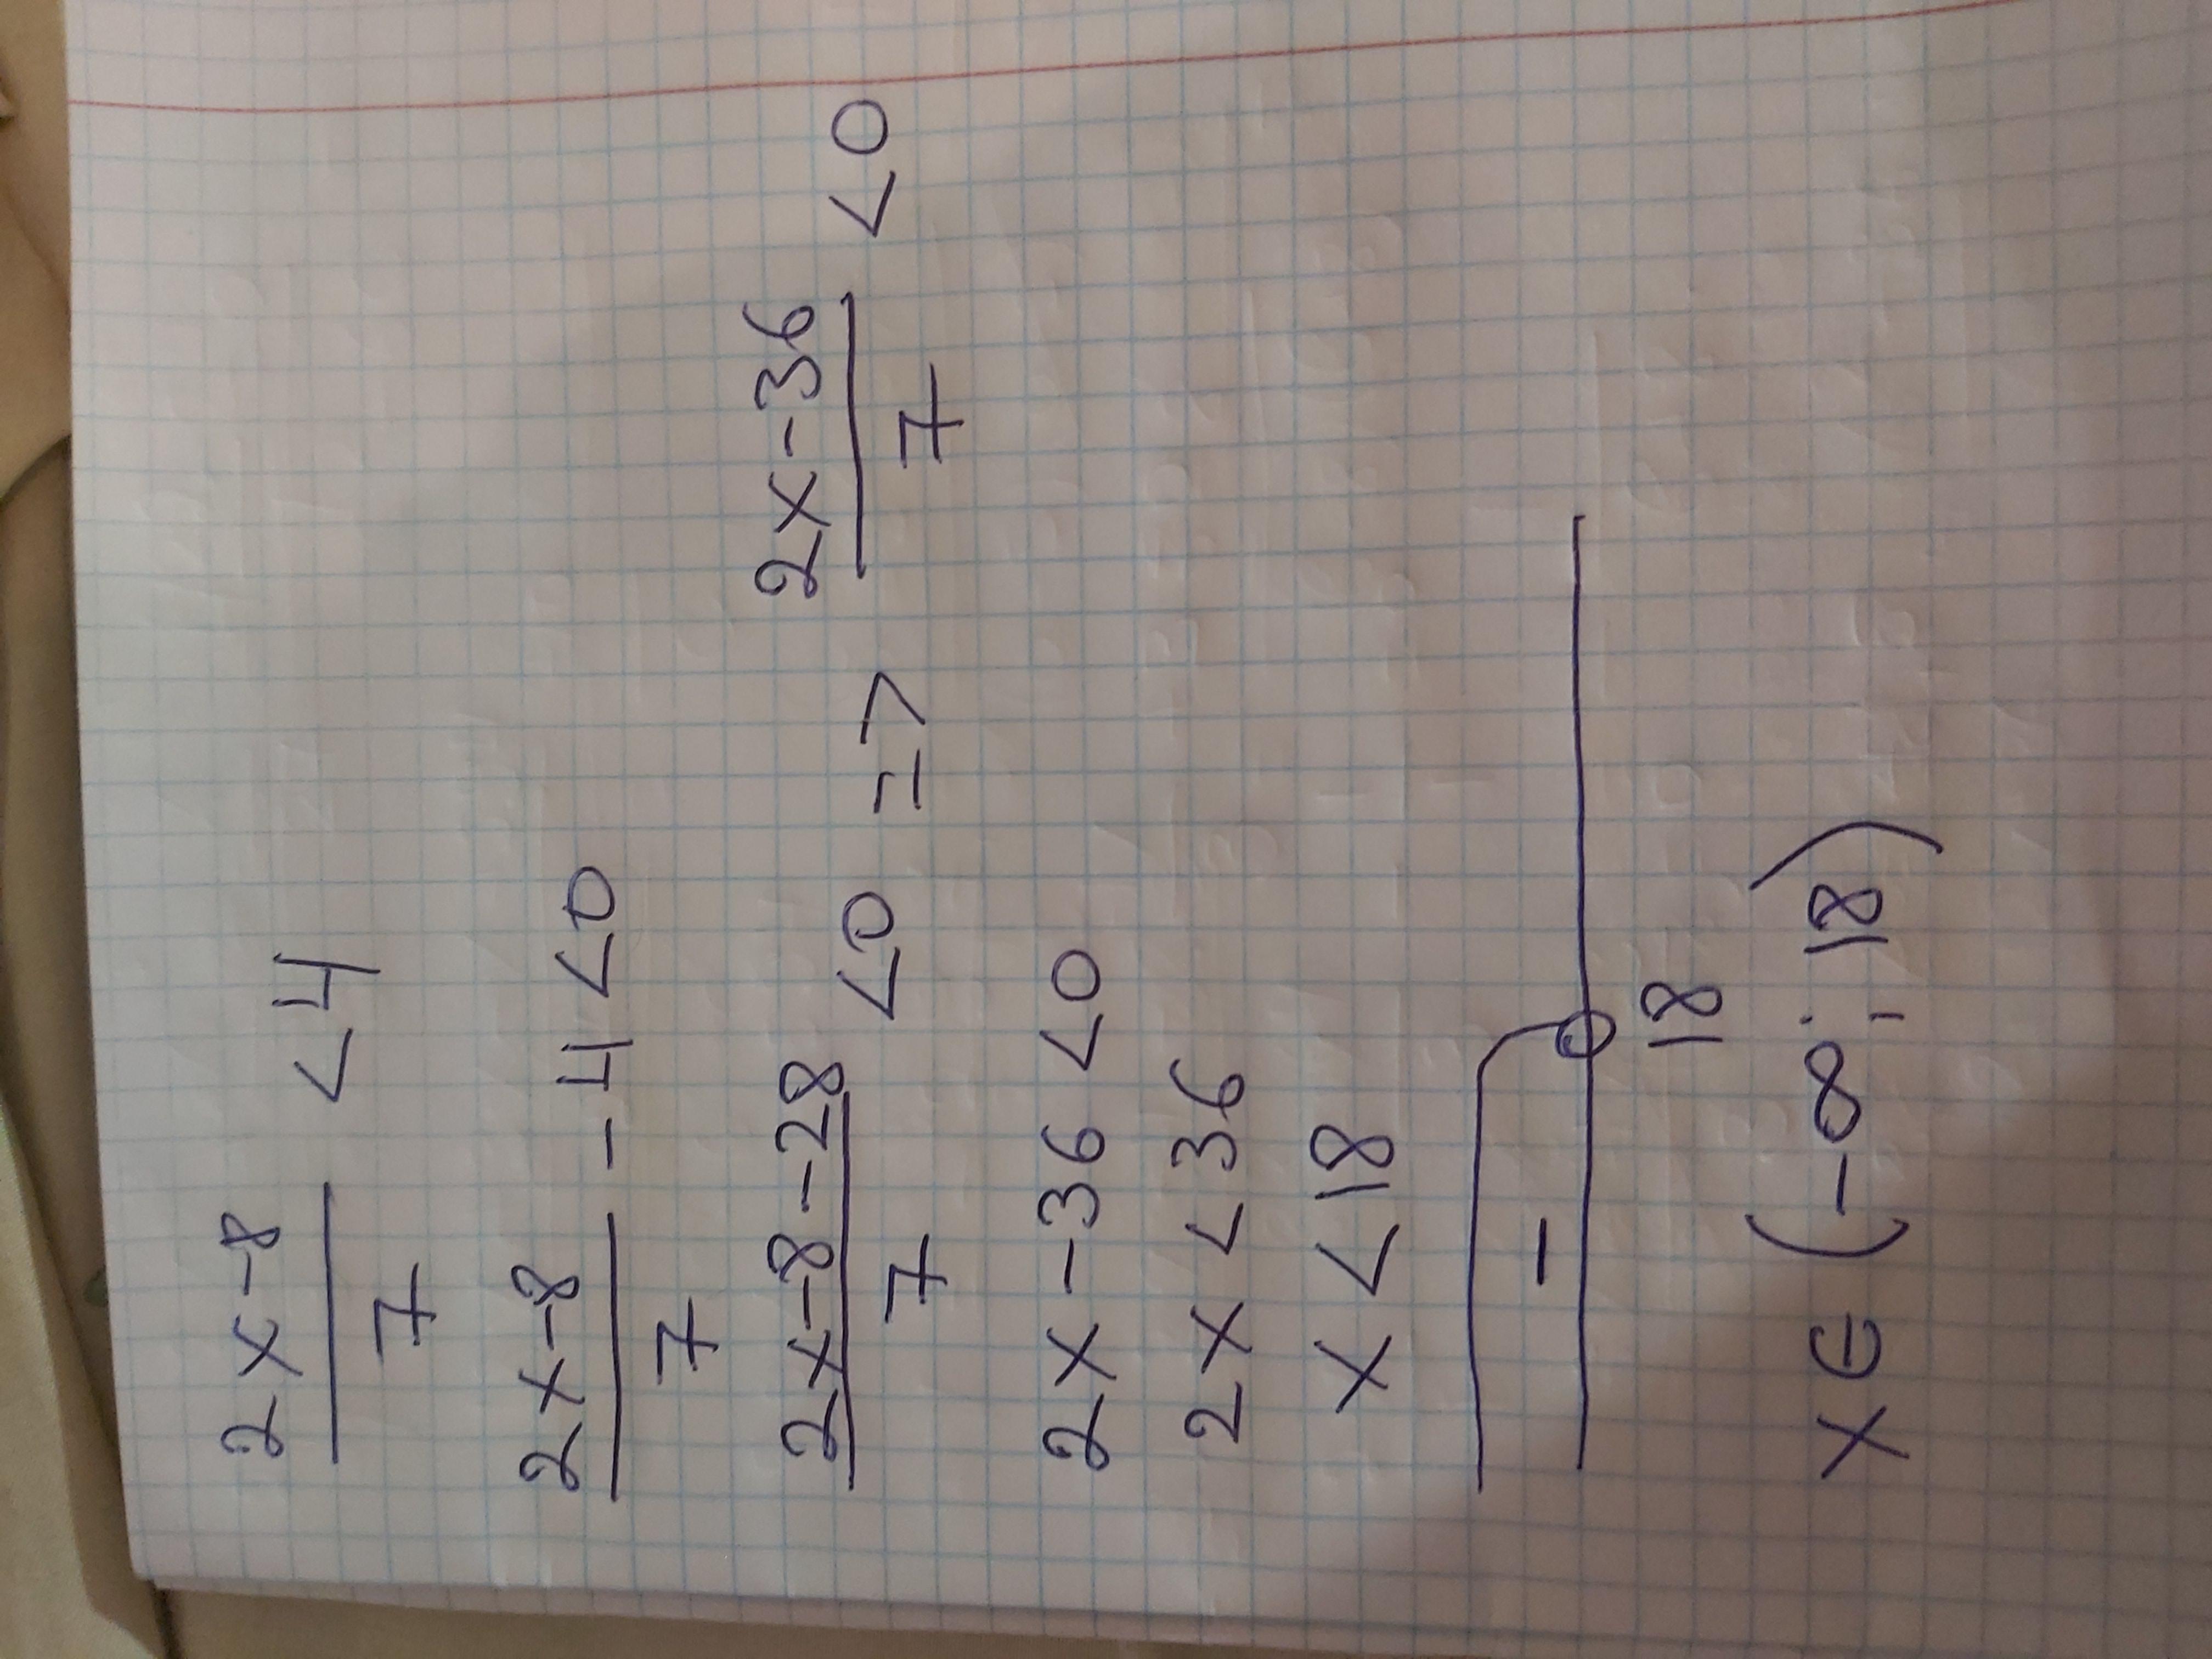 2x-8/7 <4
2x-8/7 - 4 <0
2x-8-28/7 <0 => 2x-36/7 <0
2x-36 <0
2x <36
x <18
-
18
x ∈ (-∞; 18)